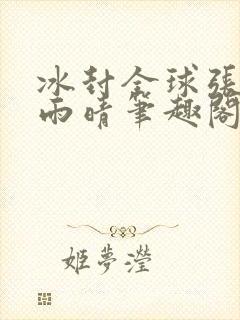 冰封全球張
雨晴筆趣閣
姬夢瀅